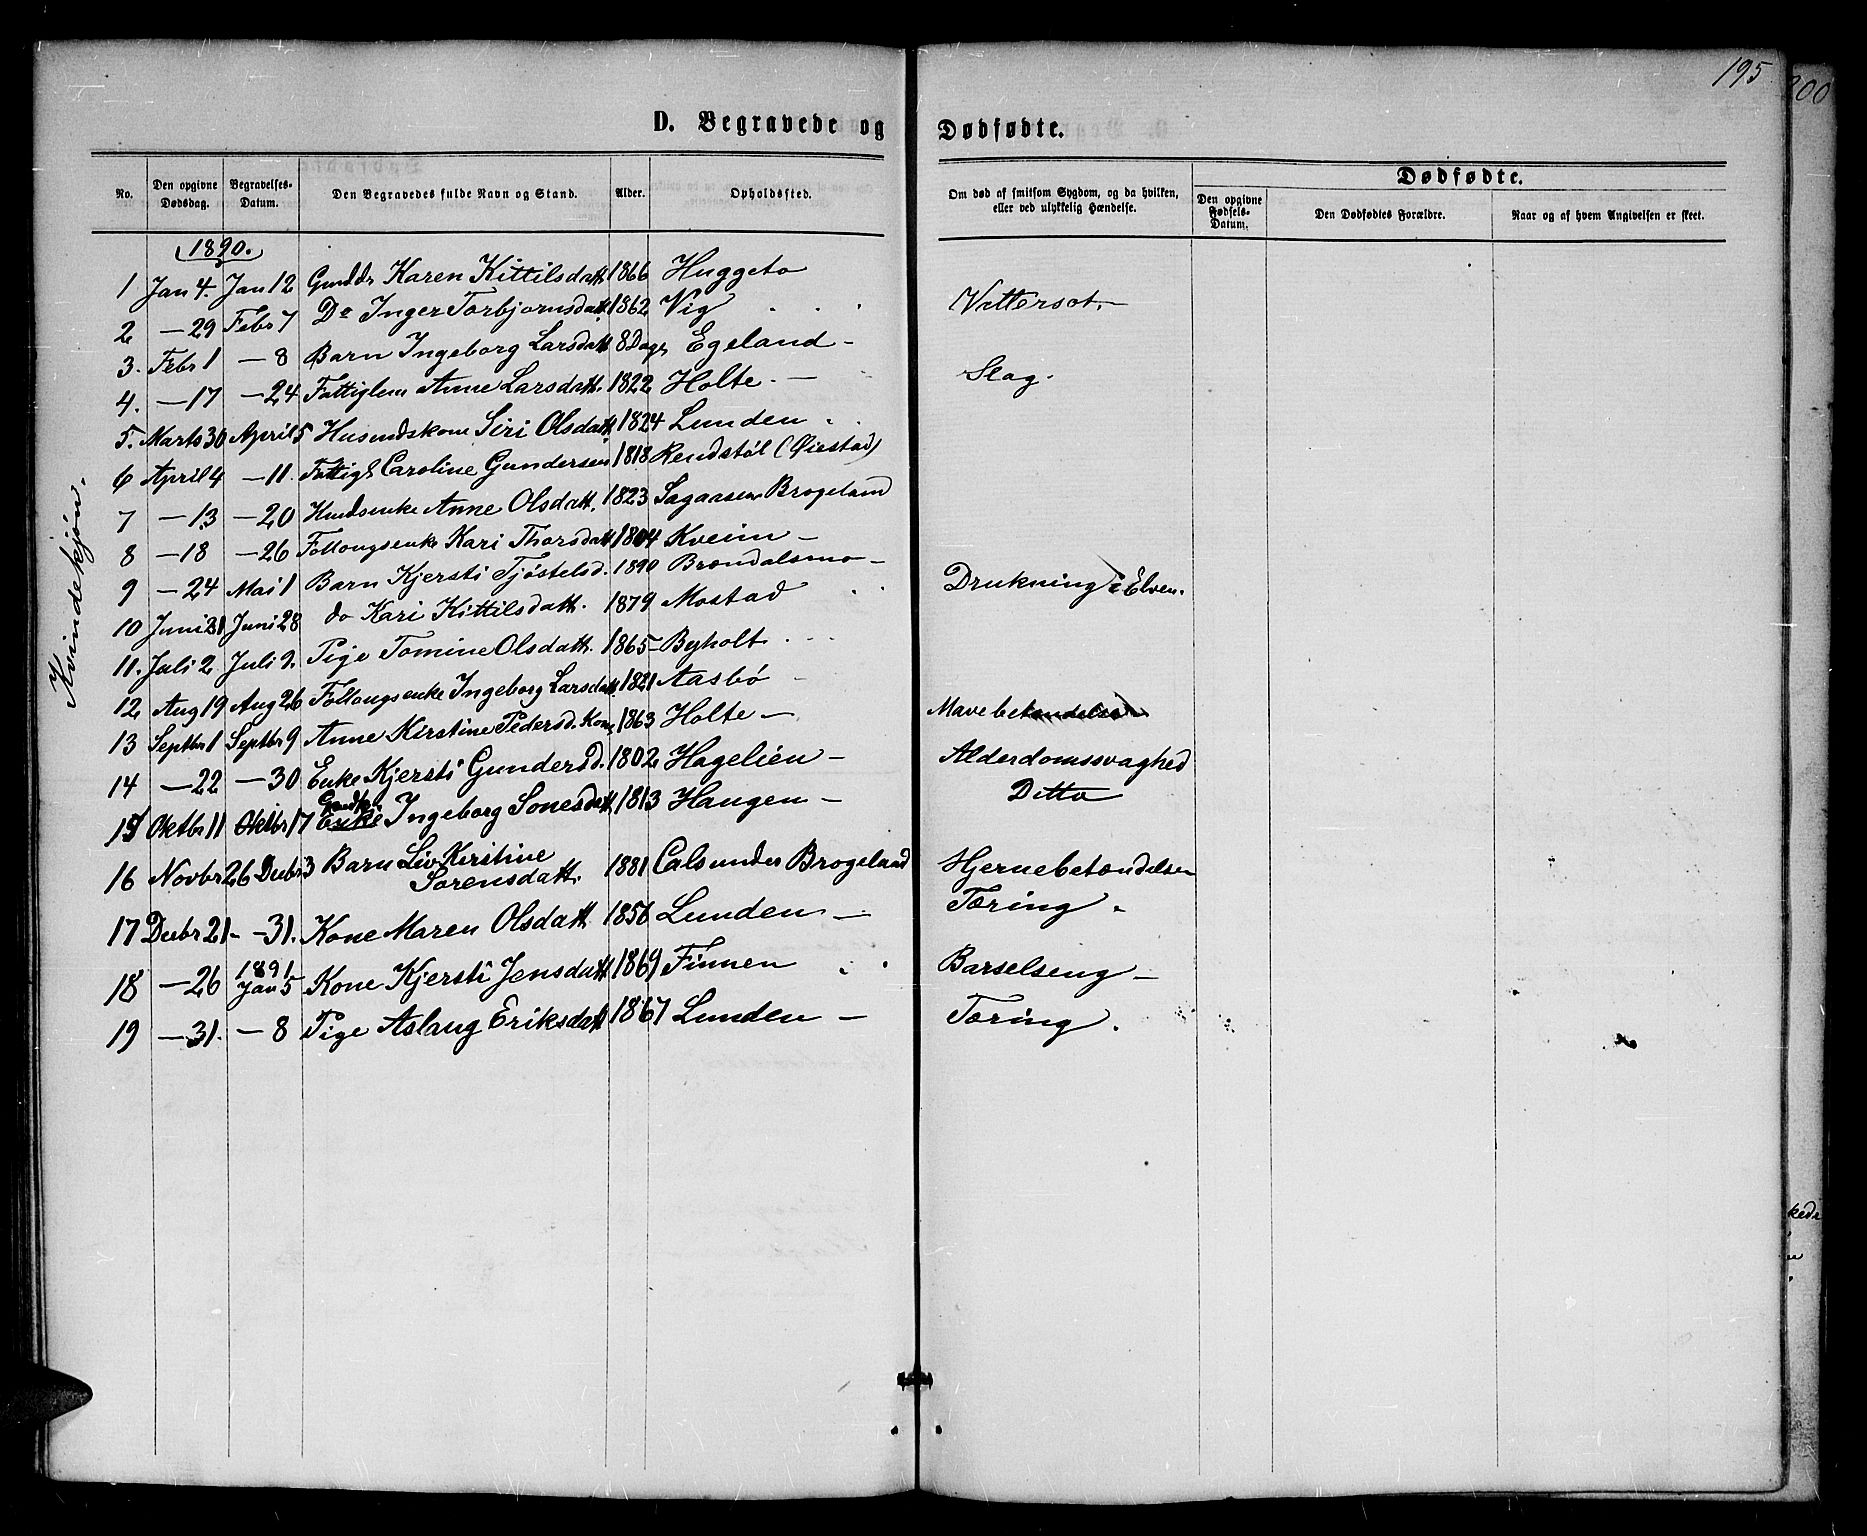 195
200
D. Begravede og Dødfødte.
No. Den opgivne Dødsdag. Begravelses-Datum. Den Begravedes fulde Navn og Stand. Alder. Opholdssted. Om død af smitsom Sygdom, og da hvilken, eller ved ulykkelig Hændelse. Dødfødte. Den opgivne Fødsels-Datum. Den Dødfødtes Forældre. Naar og af hvem Angivelsen er skeet.
Kvindekjøn.
1890.
1 Jan 4. Jan 12 Karen Kittilsdatt 1866 Huggeto
2 — 29 Febr 7 Do Inger Torbjørnsdatt 1862 Vig Vattersot.
3. Febr 1 — 8 Barn Ingeborg Larsdatt 8 Dage Egeland —
4. — 17 — 24 Fattiglem Anne Larsdatt. 1822 Holte. — Slag.
5. Marts 30 April 5 Husmdskone Siri Olsdatt 1824 Lunden
6 April 4 — 11. Fattigl Caroline Gundersen 1818 Rendstøl (Øiestad)
7 — 13 — 20 Husmdsenke Anne Olsdatt. 1823 Sagaasen Brogeland
8 — 18 — 26 Føllougsenke Kari Thorsdatt 1804 Kveim —
9 — 24 Mai 1 Barn Kjersti Tjøstelsd. 1890 Brændalsmo —
10 Juni 21 Juni 28 do Kari Kittilsdatt. 1879 Mostad Drukning i Elven.
11. Juli 2 Juli 9. Pige Tomine Olsdatt. 1865 — Byholt
12 Aug 19 Aug 26 Føllougsenke Ingeborg Larsdatt. 1821 Aasbø
13 Septbr 1 Septbr 9 Anne Kirstine Pedersd. Kone 1863 Holte — Mavebetændelse
14 — 22 — 30 Enke Kjersti Gundersd. 1802 Hagelien — Alderdomssvaghed
15 Oktbr 11 Oktbr 17 Enke Ingeborg Sonesdatt 1813 Haugen — Ditto
16 Novbr 26 Decbr 3 Barn Liv Kirstine Sørensdatt. 1881 Cals under Brogeland Hjernebetændelse
17 Decbr 21 — — 31. Kone Maren Olsdatt 1856 Lunden — Tæring.
18 — 26 1891 Jan 5 Kone Kjersti Jensdatt 1869 Finnen Barselseng —
19 — 31. — 8 Pige Aslaug Eriksdatt 1867 Lunden — Tæring.